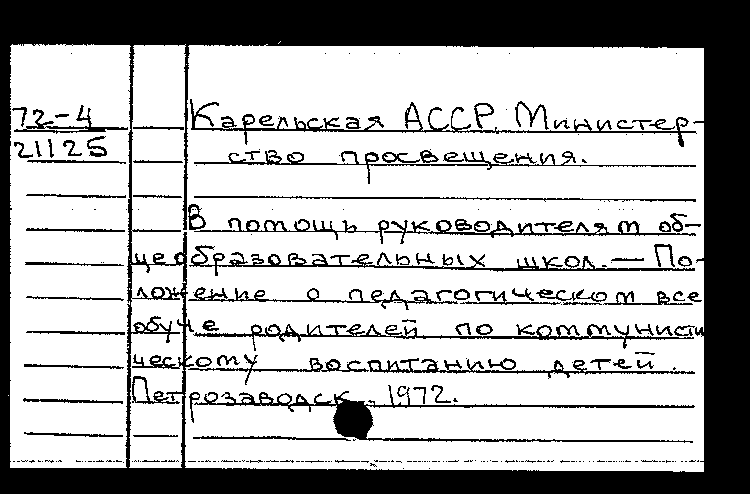 72-4
21125
Карельская АССР. Министер-
ство просвещения.
В помощь руководителям об-
щеобразовательных школ. — По-
ложение о педагогическом все
обуче родителей по коммунисти
ческому воспитанию детей.
Петрозаводск, 1972.